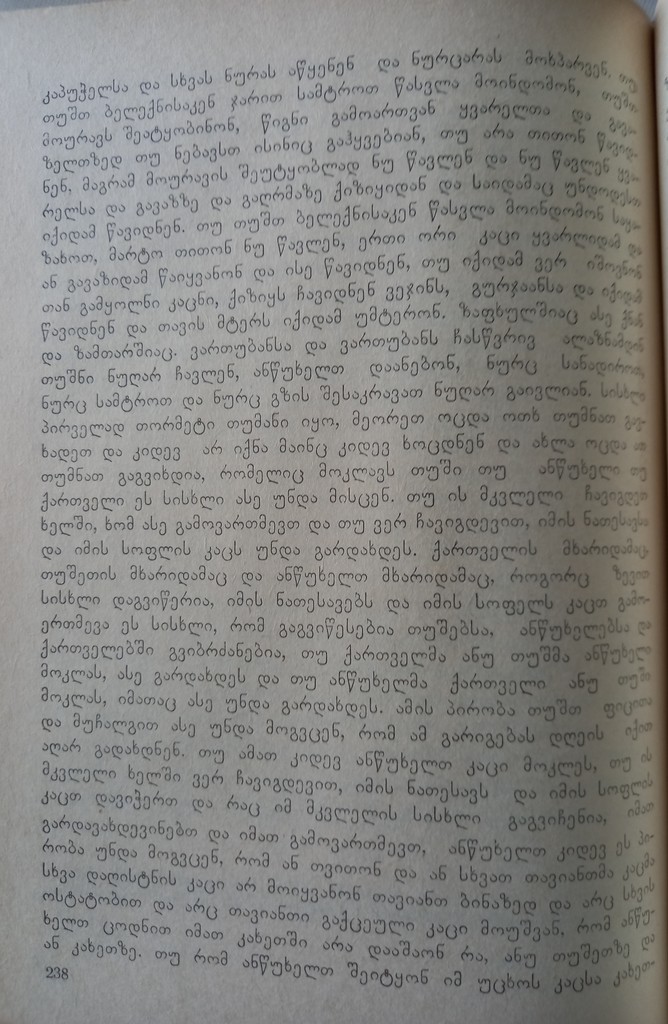 კაპუჭელსა და სხვას ნურას აწყენენ და ნურცარას მოხპარვენ. თუ
თუშთ ბელექნისაკენ ჯარით სამტროთ წასვლა მოინდომონ,
მოურავს შეატყობინონ, წიგნი გამოართვან ყვარელთა და
ზელთზედ თუ ნებავსთ ისინიც გაჰყვებიან, თუ არა თითონ
ნენ, მაგრამ მოურავის შეუტყობლად ნუ წავლენ და ნუ წავლენ
რელსა და გავაზზე და გაღრმაზე ქიზიყიდან და საიდამაც უნდოდესთ
იქიდამ წავიდნენ. თუ თუშთ ბელექნისაკენ წასვლა მოინდომონ
ზახოთ, მარტო თითონ ნუ წავლენ, ერთი ორი კაცი ყვარლიდამ და
ან გავაზიდამ წაიყვანონ და ისე წავიდნენ, თუ იქიდამ ვერ იშოვნონ
თან გამყოლნი კაცნი, ქიზიყს ჩავიდნენ ვეჯინს, გურჯაანსა და იქიდამ
წავიდნენ და თავის მტერს იქიდამ უმტერონ. ზაფხულშიაც ასე ქნან
და ზამთარშიაც. ვართუბანსა და ვართუბანს ჩასწვრივ ალაზნამდინ
თუშნი ნუღარ ჩავლენ, ანწუხელთ დაანებონ, ნურც სანადიროთ,
ნურც სამტროთ და ნურც გზის შესაკრავათ ნუღარ გაივლიან. სისხლი
პირველად თორმეტი თუმანი იყო, მეორეთ ოცდა ოთხ თუმნათ
ხადეთ და კიდევ არ იქნა მაინც კიდევ ხოცდნენ და ახლა ოცდა ათ
თუმნათ გაგვიხდია, რომელიც მოკლავს თუში თუ ანწუხელი თუ
ქართველი ეს სისხლი ასე უნდა მისცენ. თუ ის მკვლელი ჩავიგდეთ
ხელში, ხომ ასე გამოვართმევთ და თუ ვერ ჩავიგდევით, იმის ნათესავსა
და იმის სოფლის კაცს უნდა გარდახდეს. ქართველის მხარიდამაც,
თუშეთის მხარიდამაც და ანწუხელთ მხარიდამაც, როგორც ზევით
სისხლი დაგვიწერია, იმის ნათესავებს და იმის სოფელს კაცთ გამო-
ერთმევა ეს სისხლი, რომ გაგვიწესებია თუშებსა, ანწუხელებსა და
ქართველებში გვიბრძანებია, თუ ქართველმა ანუ თუშმა ანწუხელი
მოკლას, ასე გარდახდეს და თუ ანწუხელმა ქართველი ანუ თუში
მოკლას, იმათაც ასე უნდა გარდახდეს. ამის პირობა თუშთ ფიცითა
და მუჩალგით ასე უნდა მოგვცენ, რომ ამ გარიგებას დღეის იქით
აღარ გადახდნენ. თუ ამათ კიდევ ანწუხელთ კაცი მოკლეს, თუ ის
მკვლელი ხელში ვერ ჩავიგდევით, იმის ნათესავს და იმის სოფლის
კაცთ დავიჭერთ და რაც იმ მკვლელის სისხლი გაგვიჩენია, იმათ
გარდავახდევინებთ და იმათ გამოვართმევთ, ანწუხელთ კიდევ ეს პი-
რობა უნდა მოგვცენ, რომ ან თვითონ და ან სხვათ თავიანთმა კაცმა
სხვა დაღისტნის კაცი არ მოიყვანონ თავიანთ ბინაზედ და არც სხვის
ოსტატობით და არც თავიანთი გაქცეული კაცი მოუშვან, რომ ანწუ-
ხელთ ცოდნით იმათ კახეთში არა დააშაონ რა, ანუ თუშეთზე და
ან კახეთზე. თუ რომ ანწუხელთ შეიტყონ იმ უცხოს კაცსა კახეთ-
238